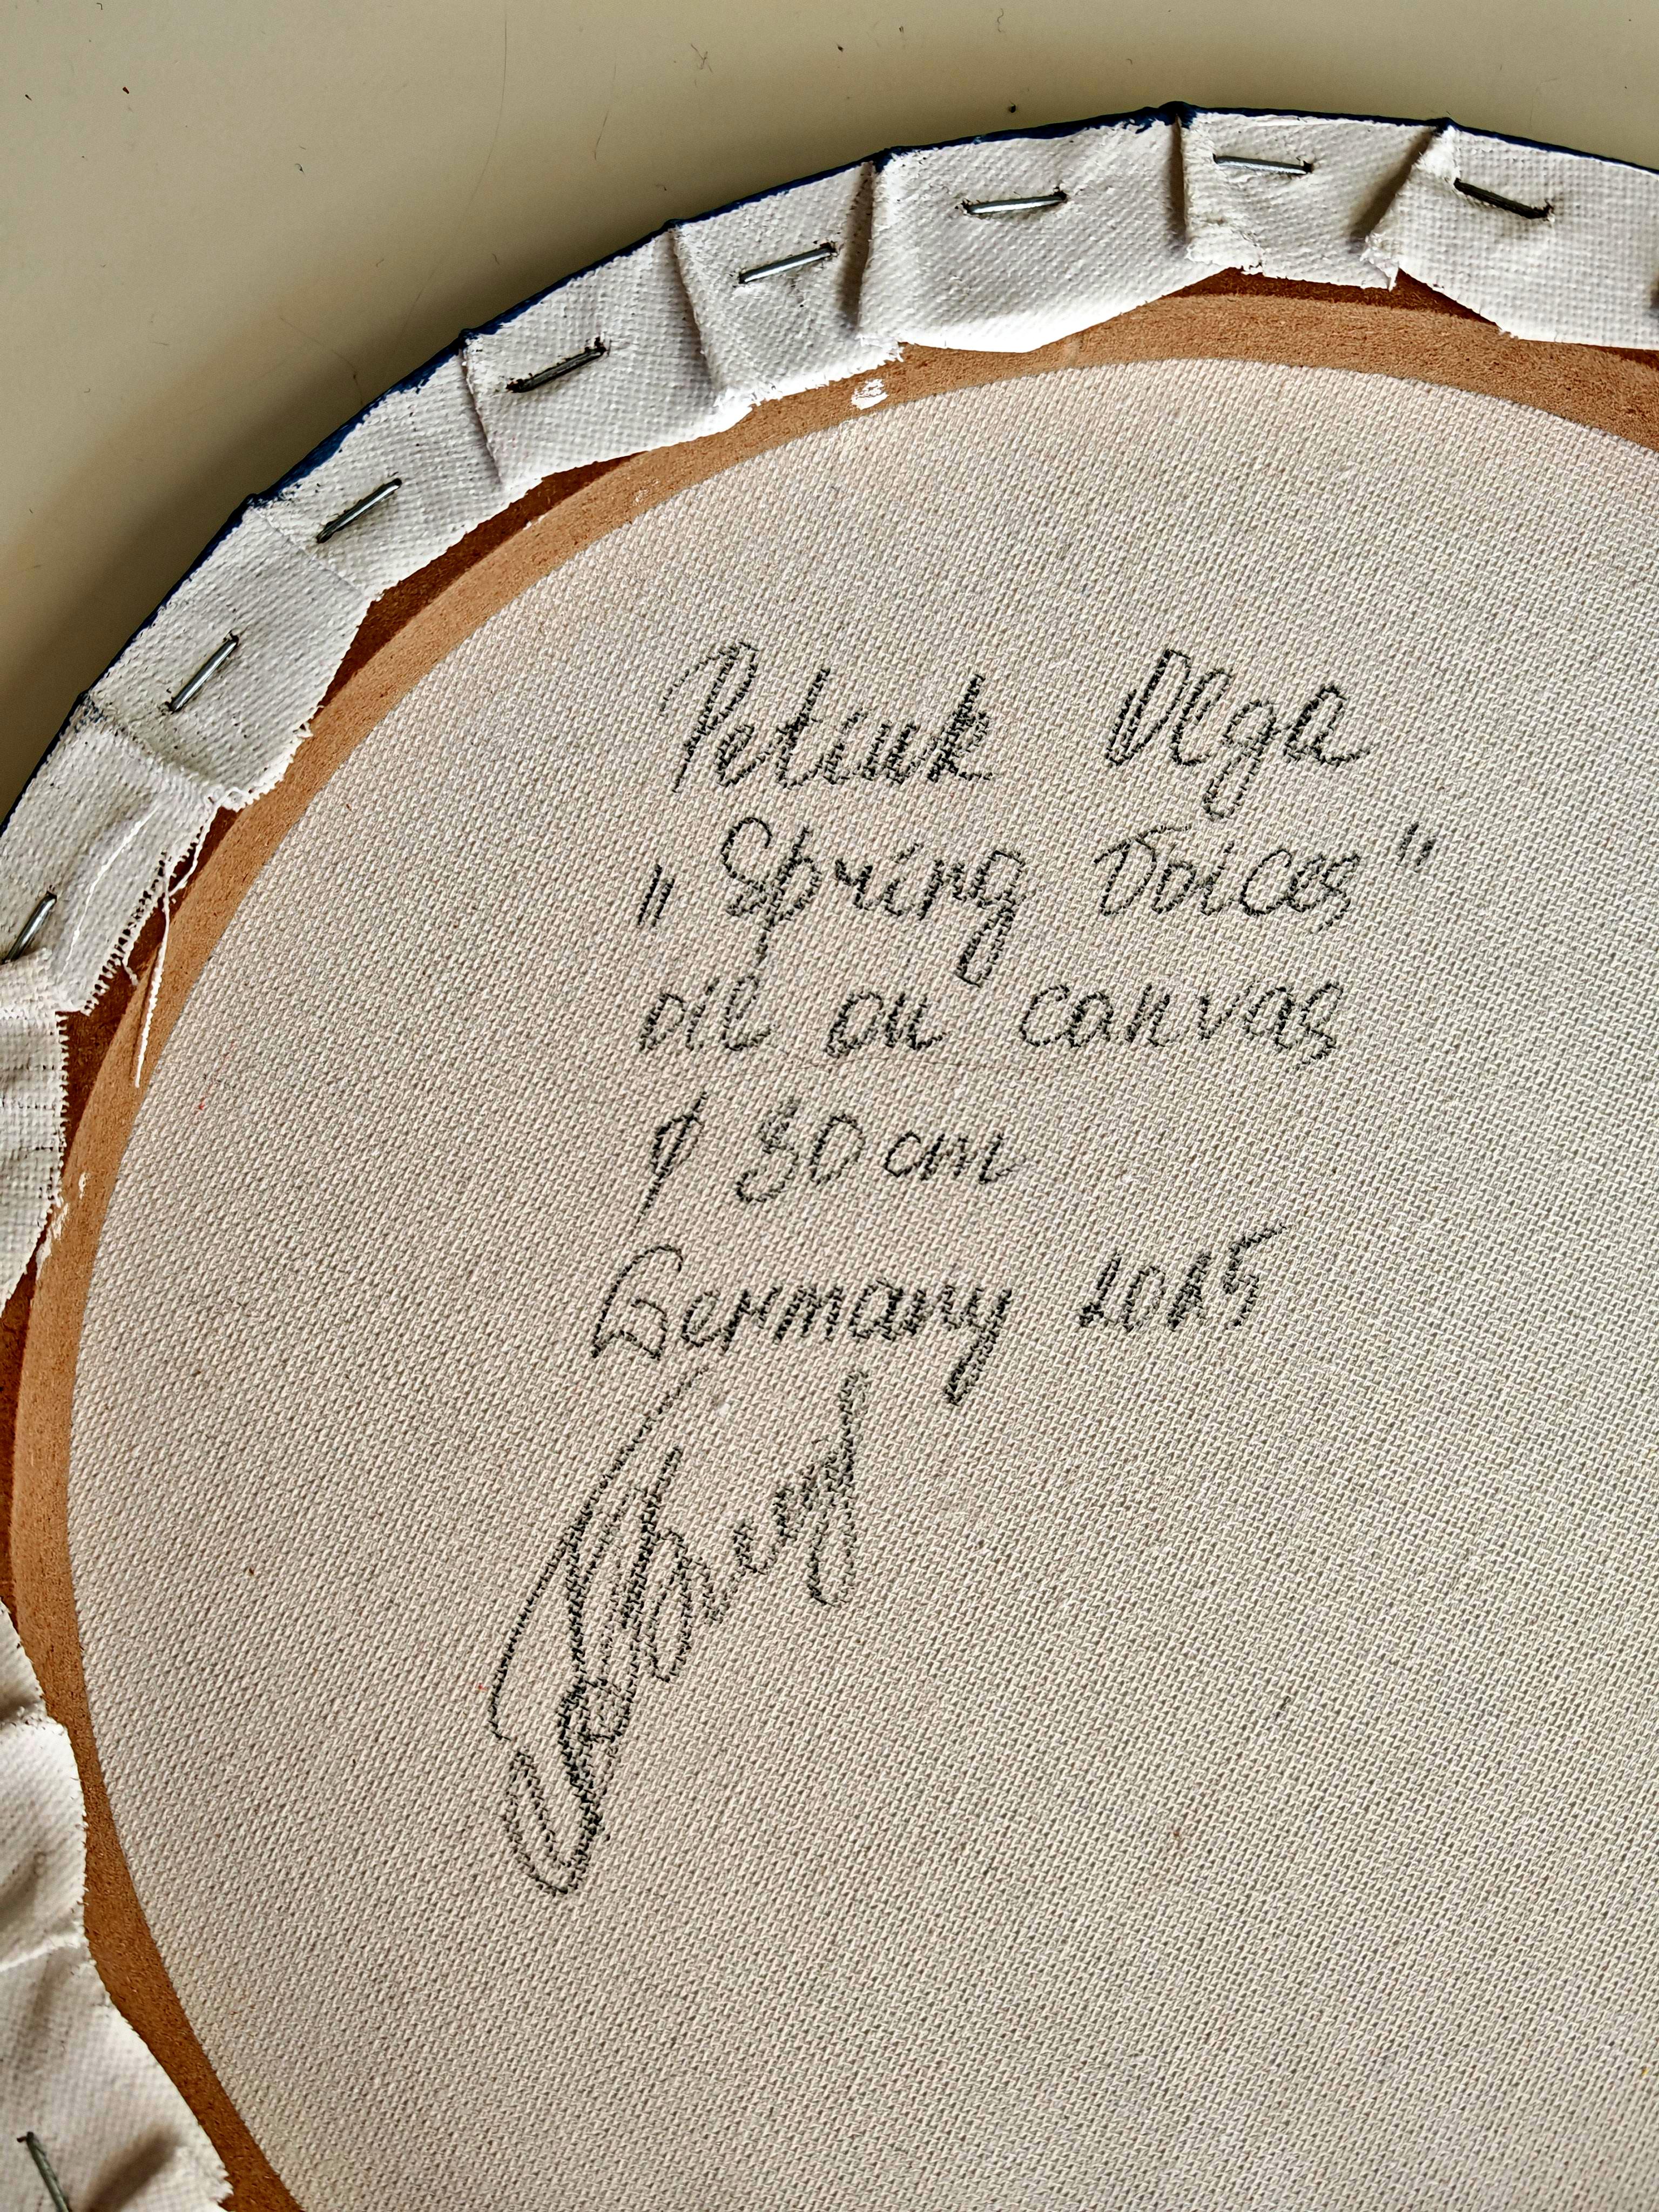 Petiuk Olga
„Spring Voices"
oil on canvas
⌀ 30 cm
Germany 2025